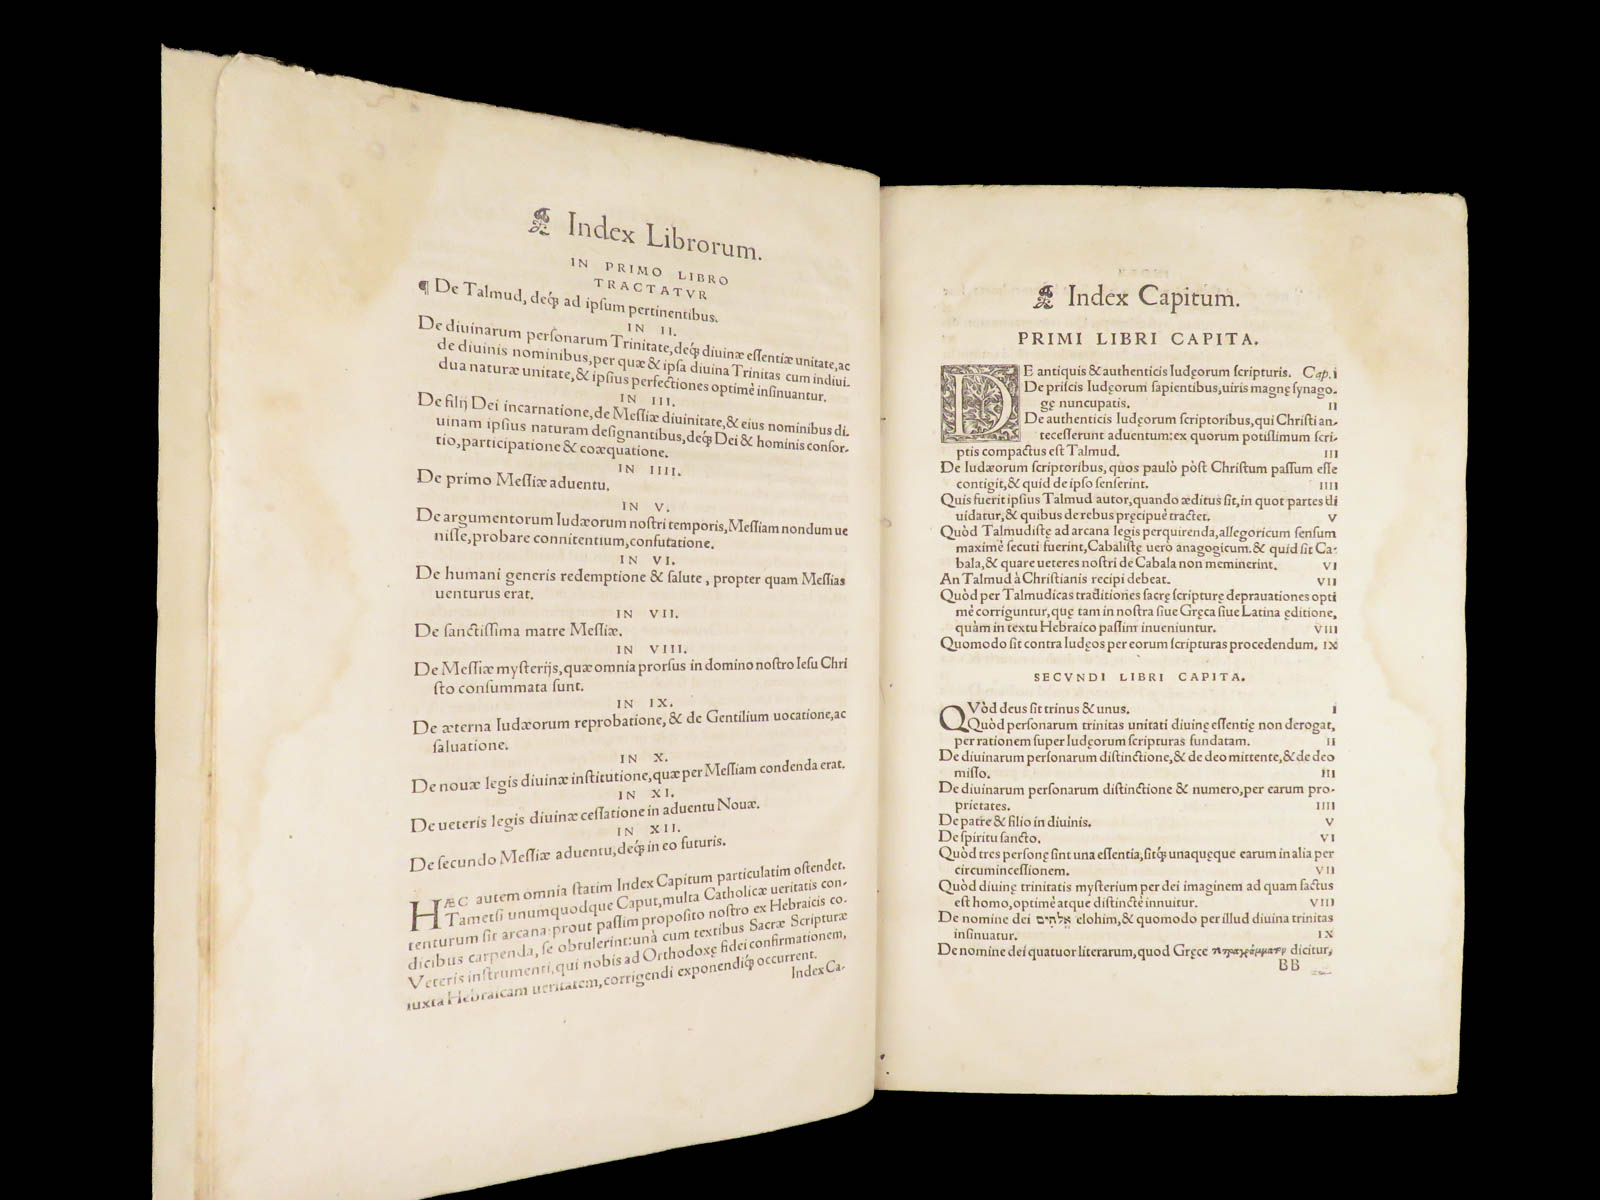 Index Librorum.
IN PRIMO LIBRO
TRACTATVR
¶ De Talmud, deq́; ad ipſum pertinentibus.
IN II.
De diuinarum perſonarum Trinitate, deq́; diuinæ eſſentiæ unitate, ac
de diuinis nominibus, per quæ & ipſa diuina Trinitas cum indiui-
dua naturæ unitate, & ipſius perfectiones optimè inſinuantur.
IN III.
De filij Dei incarnatione, de Meſſiæ diuinitate, & eius nominibus di
uinam ipſius naturam deſignantibus, deq́; Dei & hominis conſor-
tio, participatione & coæquatione.
IN IIII.
De primo Meſſiæ aduentu.
IN V.
De argumentorum Iudæorum noſtri temporis, Meſſiam nondum ue
niſſe, probare connitentium, confutatione.
IN VI.
De humani generis redemptione & ſalute, propter quam Meſſias
uenturus erat.
IN VII.
De ſanctiſſima matre Meſſiæ.
IN VIII.
De Meſſiæ myſterijs, quæ omnia prorſus in domino noſtro Ieſu Chri
ſto conſummata ſunt.
IN IX.
De æterna Iudæorum reprobatione, & de Gentilium uocatione, ac
ſaluatione.
IN X.
De nouæ legis diuinæ inſtitutione, quæ per Meſſiam condenda erat.
IN XI.
De ueteris legis diuinæ ceſſatione in aduentu Nouæ.
IN XII.
De ſecundo Meſſiæ aduentu, deq́; in eo futuris.
HÆC autem omnia ſtatim Index Capitum particulatim oſtendet.
Tametſi unumquodque Caput, multa Catholicæ ueritatis con-
tenturum ſit arcana: prout paſſim propoſito noſtro ex Hebraicis co-
dicibus carpenda, ſe obtulerint: unà cum textibus Sacræ Scripturæ
Veteris inſtrumenti, qui nobis ad Orthodoxę fidei confirmationem,
iuxta Hebraicam ueritatem, corrigendi exponendiq́; occurrent.
Index Ca-
Index Capitum.
PRIMI LIBRI CAPITA.
DE antiquis & authenticis Iudęorum ſcripturis. Cap. i
De priſcis Iudęorum ſapientibus, uiris magnę ſynago-
gę nuncupatis. II
De authenticis Iudęorum ſcriptoribus, qui Chriſti an-
teceſſerunt aduentum: ex quorum potiſſimum ſcri-
ptis compactus eſt Talmud. III
De Iudæorum ſcriptoribus, quos paulò pòſt Chriſtum paſſum eſſe
contigit, & quid de ipſo ſenſerint. IIII
Quis fuerit ipſius Talmud autor, quando æditus ſit, in quot partes di
uidatur, & quibus de rebus pręcipuè tractet. V
Quòd Talmudiſtę ad arcana legis perquirenda, allegoricum ſenſum
maximè ſecuti fuerint, Cabaliſtę uerò anagogicum. & quid ſit Ca-
bala, & quare ueteres noſtri de Cabala non meminerint. VI
An Talmud à Chriſtianis recipi debeat. VII
Quòd per Talmudicas traditiones ſacrę ſcripturę deprauationes opti
mè corriguntur, quę tam in noſtra ſiue Gręca ſiue Latina ęditione,
quàm in textu Hebraico paſſim inueniuntur. VIII
Quomodo ſit contra Iudęos per eorum ſcripturas procedendum. IX
SECVNDI LIBRI CAPITA.
QVòd deus ſit trinus & unus. I
Quòd perſonarum trinitas unitati diuinę eſſentię non derogat,
per rationem ſuper Iudęorum ſcripturas fundatam. II
De diuinarum perſonarum diſtinctione, & de deo mittente, & de deo
miſſo. III
De diuinarum perſonarum diſtinctione & numero, per earum pro-
prietates. IIII
De patre & filio in diuinis. V
De ſpiritu ſancto. VI
Quòd tres perſonę ſint una eſſentia, ſitq́; unaquęque earum in alia per
circuminceſſionem. VII
Quòd diuinę trinitatis myſterium per dei imaginem ad quam factus
eſt homo, optimè atque diſtinctè innuitur. VIII
De nomine dei אֱלֹהִים elohim, & quomodo per illud diuina trinitas
inſinuatur. IX
De nomine dei quatuor literarum, quod Gręce dicitur,
BB